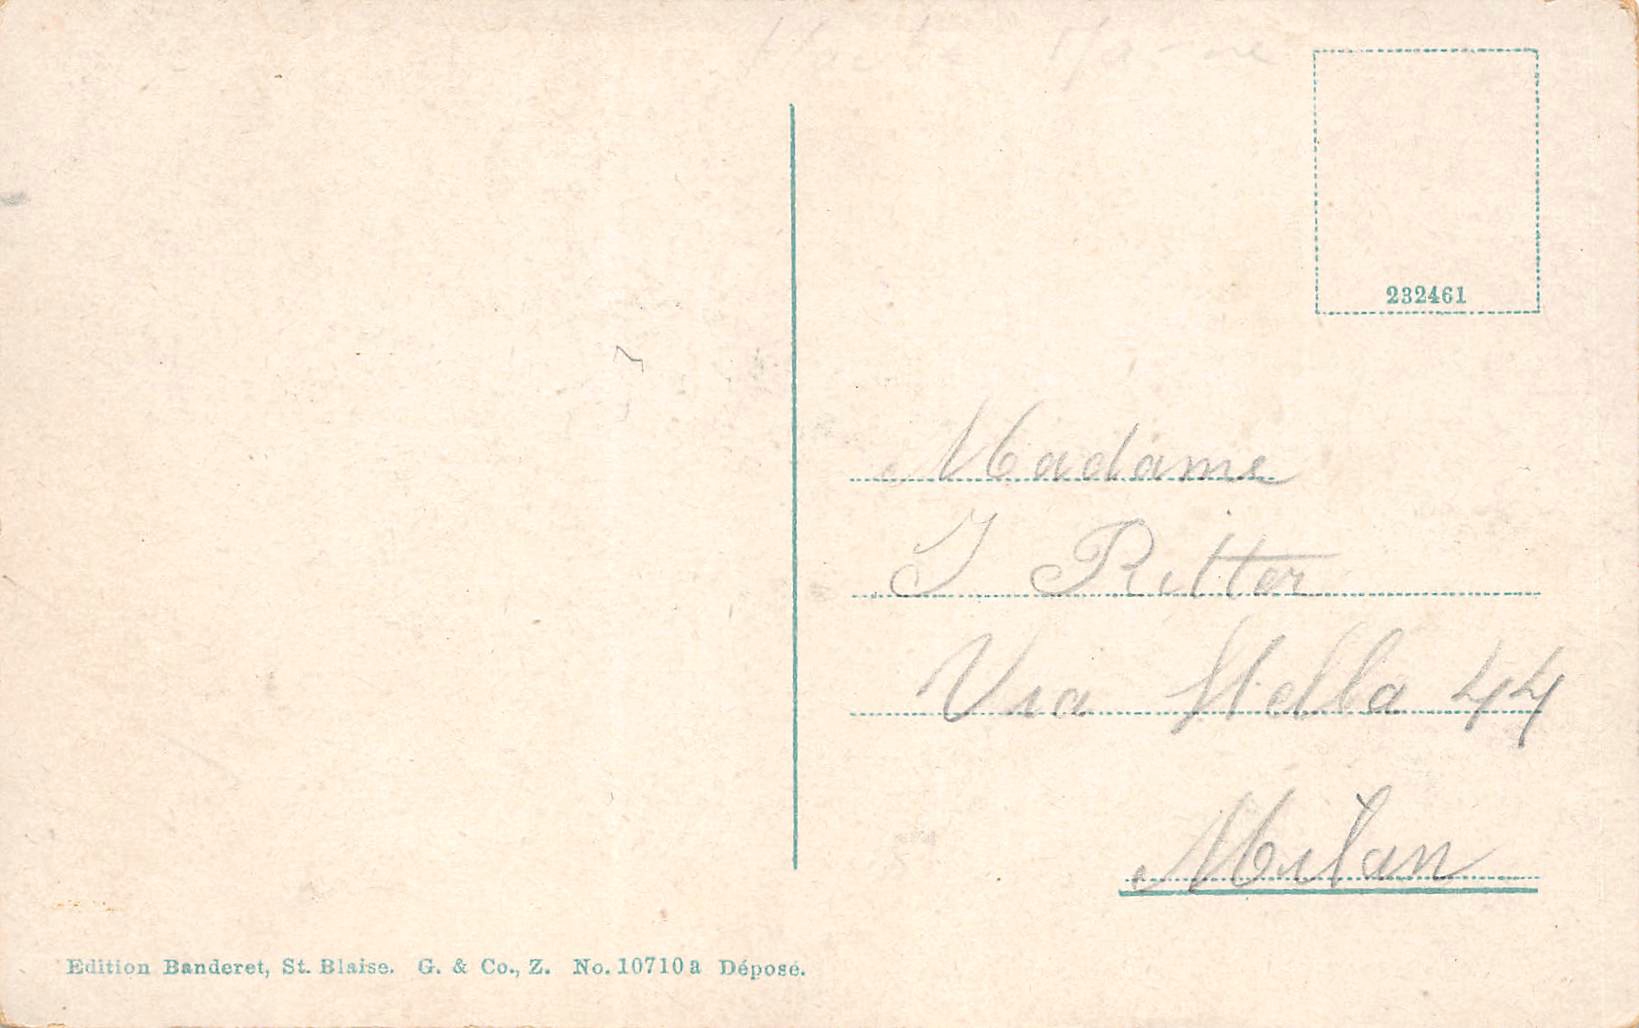 232461
Madame
J Ritter
Via Stella 44
Milan
Edition Banderet, St. Blaise. G. & Co., Z. No. 10710 a Déposé.